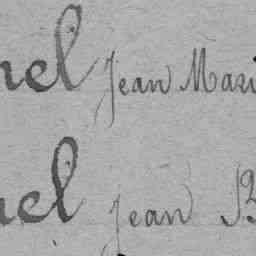 nel Jean Mari
nel Jean B